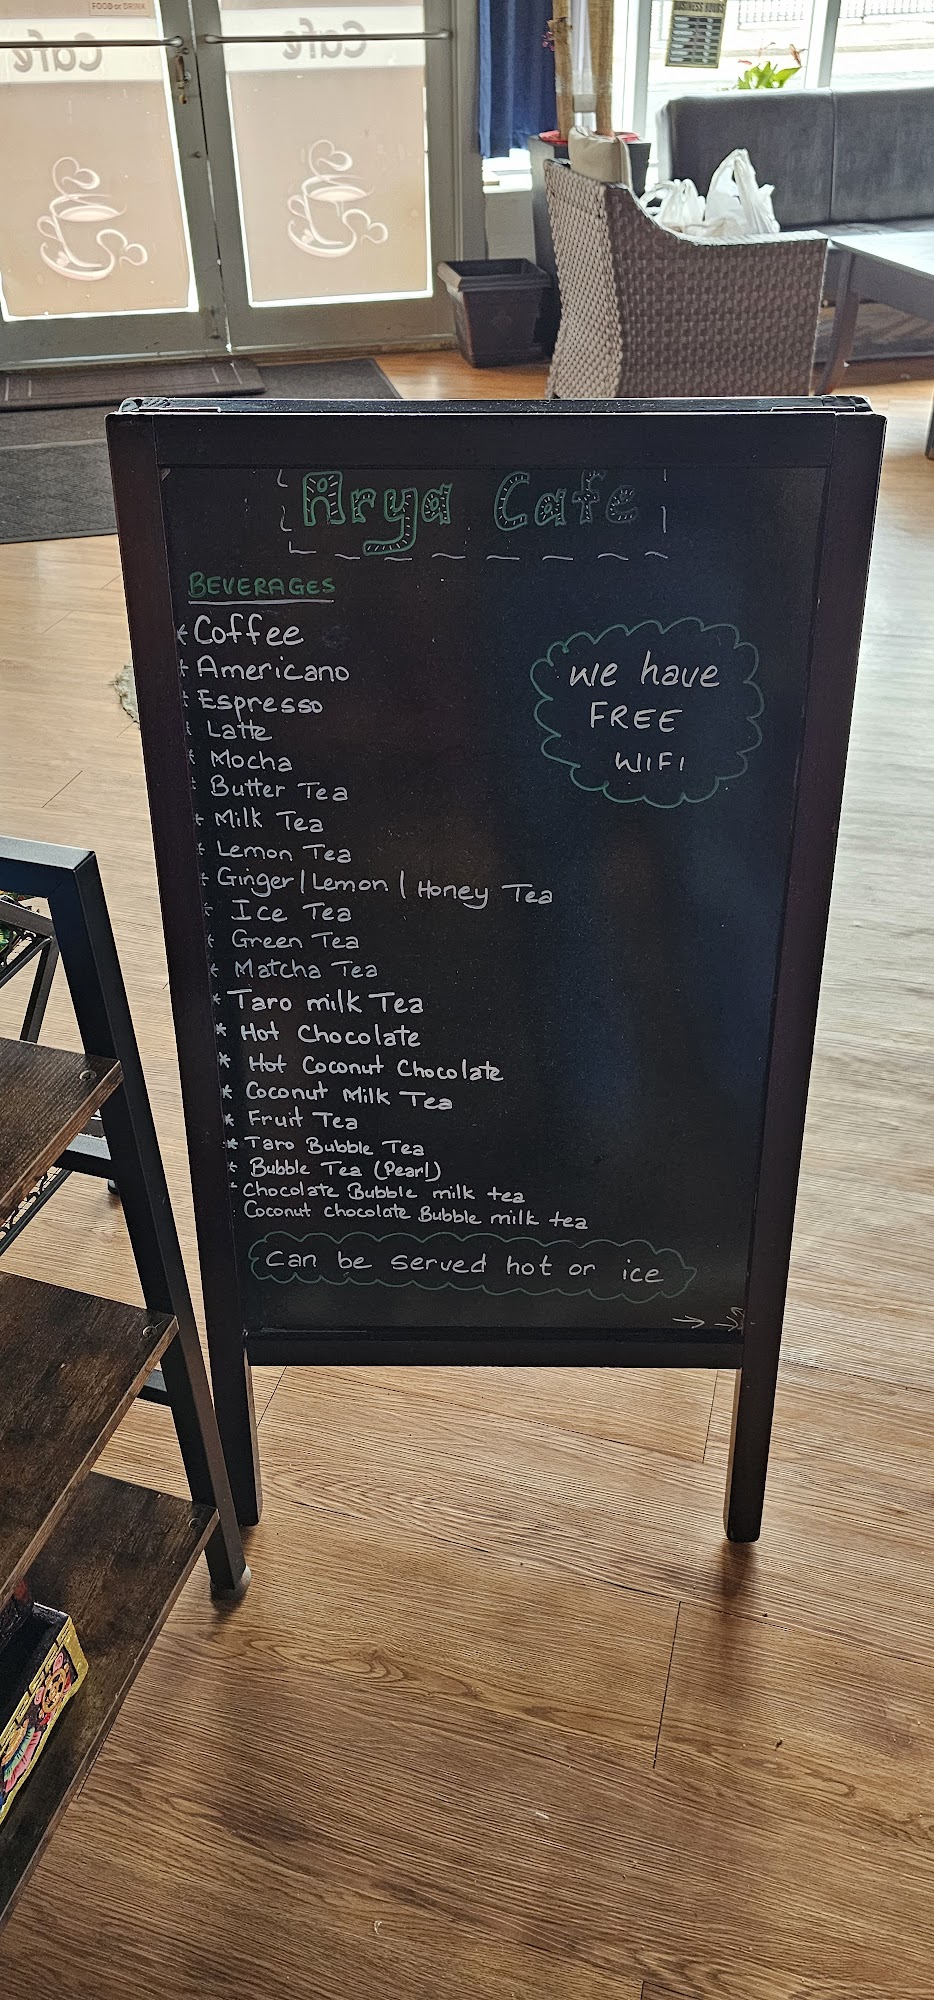 FOOD or DRINK
Cafe
Cafe
BUSINESS HOURS
Arya Cafe
BEVERAGES
* Coffee
* Americano
* Espresso
* Latte
* Mocha
* Butter Tea
* Milk Tea
* Lemon Tea
* Ginger | Lemon | Honey Tea
* Ice Tea
* Green Tea
* Matcha Tea
* Taro milk Tea
* Hot Chocolate
* Hot Coconut Chocolate
* Coconut Milk Tea
* Fruit Tea
* Taro Bubble Tea
* Bubble Tea (Pearl)
* Chocolate Bubble milk tea
* Coconut chocolate Bubble milk tea
Can be served hot or ice
we have
FREE
WIFI